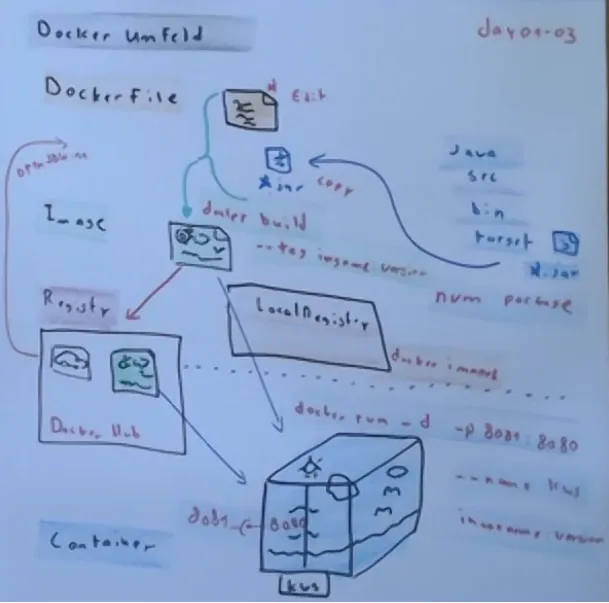 Docker Umfeld
day01-03
Dockerfile
Edit
*.jar copy
Java
src
bin
target
*.jar
Image
docker build
--tag imgname:version
Registry
LocalRegistry
docker images
Docker Hub
docker run -d -p 8081:8080
--name kws
imagename:version
8081 <- 8080
Container
kws